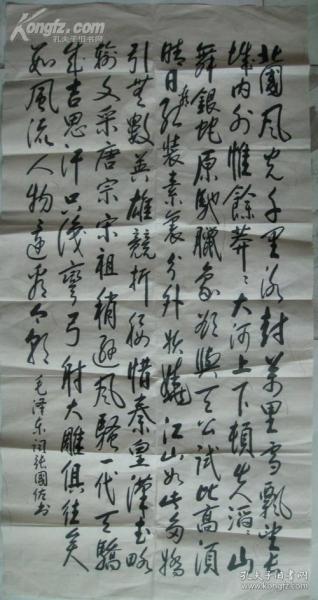 北國風光千里冰封萬里雪飄望長
城内外惟餘莽々大河上下頓失滔々山
舞銀蛇原馳臘象欲與天公試比高須
晴日看红裝素裹分外妖嬈江山如此多嬌
引無數英雄競折腰惜秦皇漢武略
輸文采唐宗宋祖稍遜風騷一代天驕
成吉思汗只識彎弓射大雕俱往矣
數風流人物還看今朝
毛泽东词张国佐书
孔夫子旧书网
孔夫子旧书网